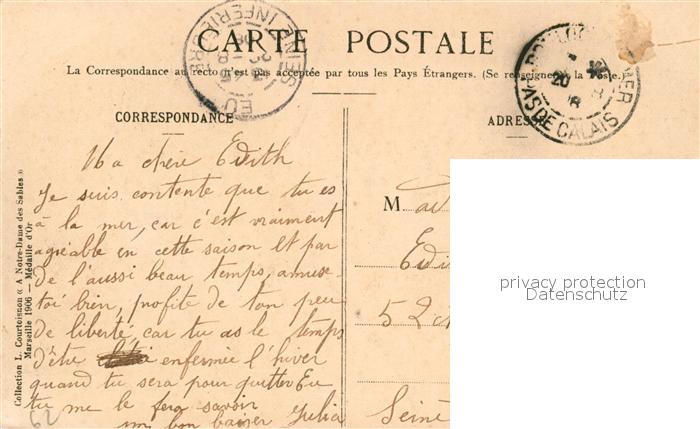 CARTE POSTALE
La Correspondance au recto n'est pas acceptée par tous les Pays Étrangers. (Se renseigner à la Poste.)
CORRESPONDANCE
ADRESSE
Ma chère Edith
Je suis contente que tu es
à la mer, car c'est vraiment
agréable en cette saison et par
de l'aussi beau temps, amuse-
toi bien, profite de ton peu
de liberté, car tu as le temps
d'être enfermée l'hiver
quand tu sera pour quitter Eu
tu me le fera savoir
un bon baiser Julia
M
Edi
52
Seine
Collection L. Courtoisnon « A Notre-Dame des Sables »
Marseille 1906 — Médaille d'Or
EU
SEINE INFERIEURE
BOULOGNE MER
PAS DE CALAIS
20
privacy protection
Datenschutz
62